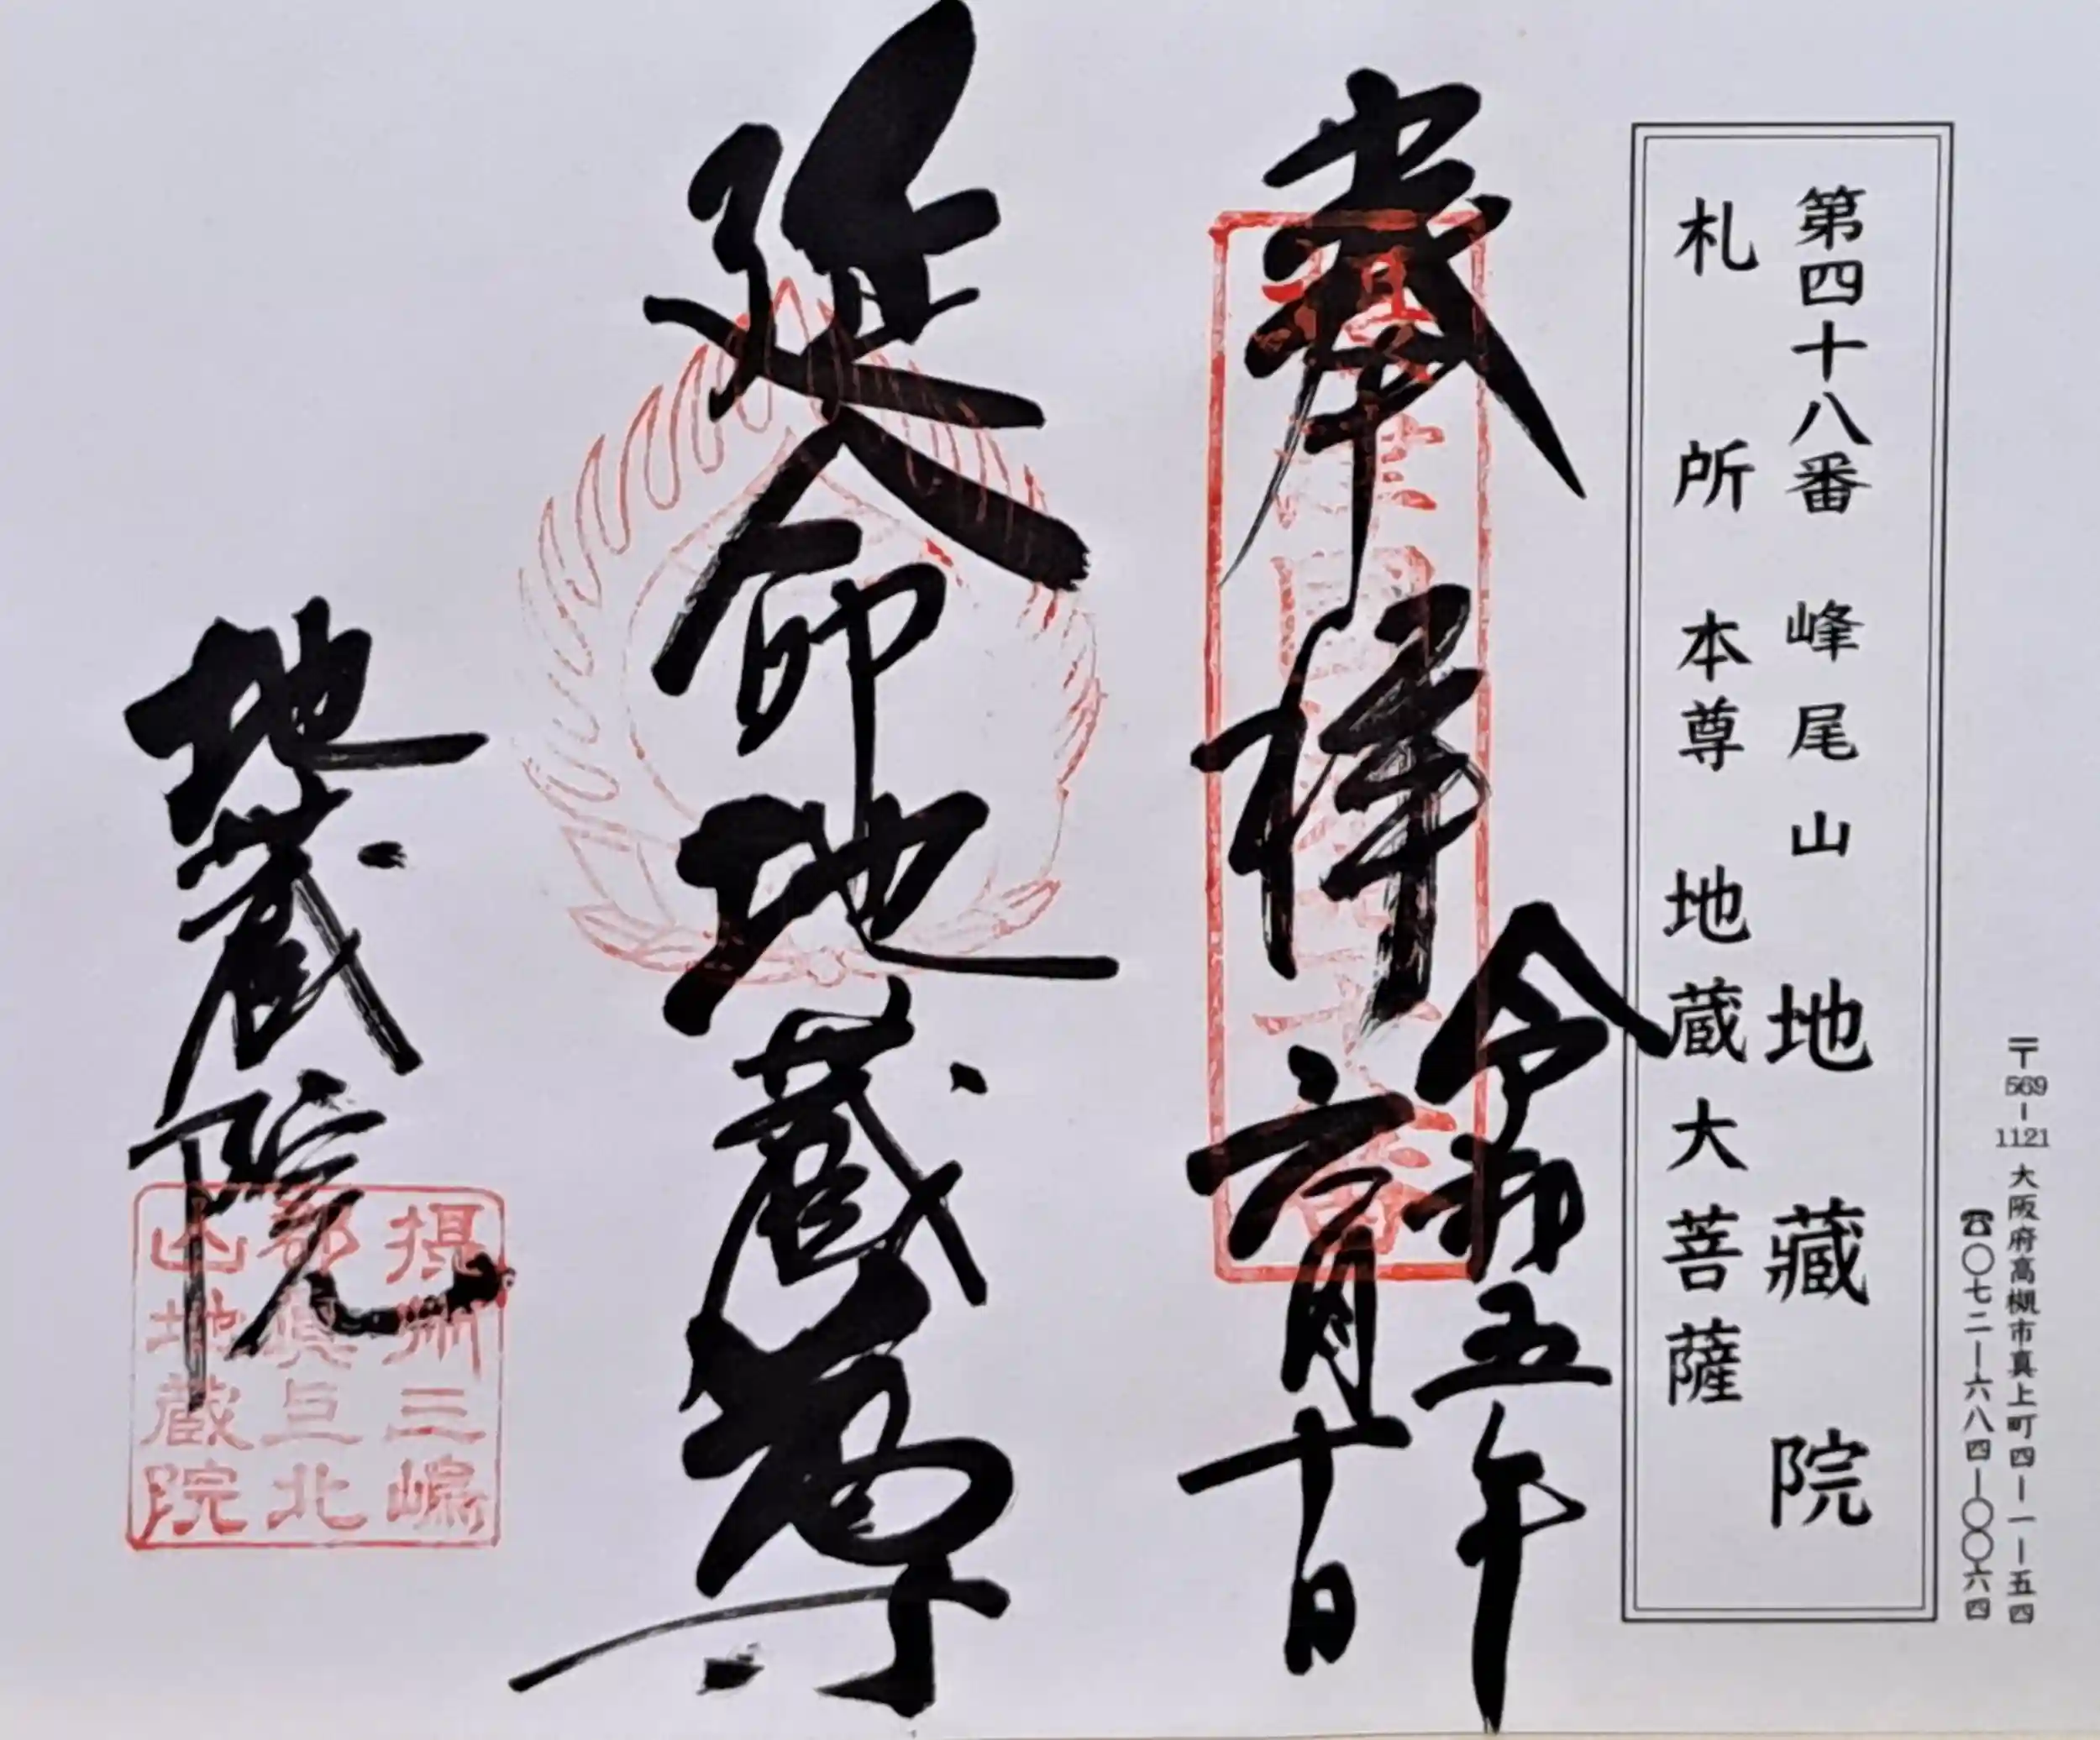 〒569-1121 大阪府高槻市真上町四-一-五四
☎〇七二-六八四-〇〇六四
第四十八番 峰尾山 地藏院
札所 本尊 地蔵大菩薩
奉拝
令和五年
六月十日
延命地蔵尊
地蔵院
摂州三嶋
郡真上北
山地蔵院